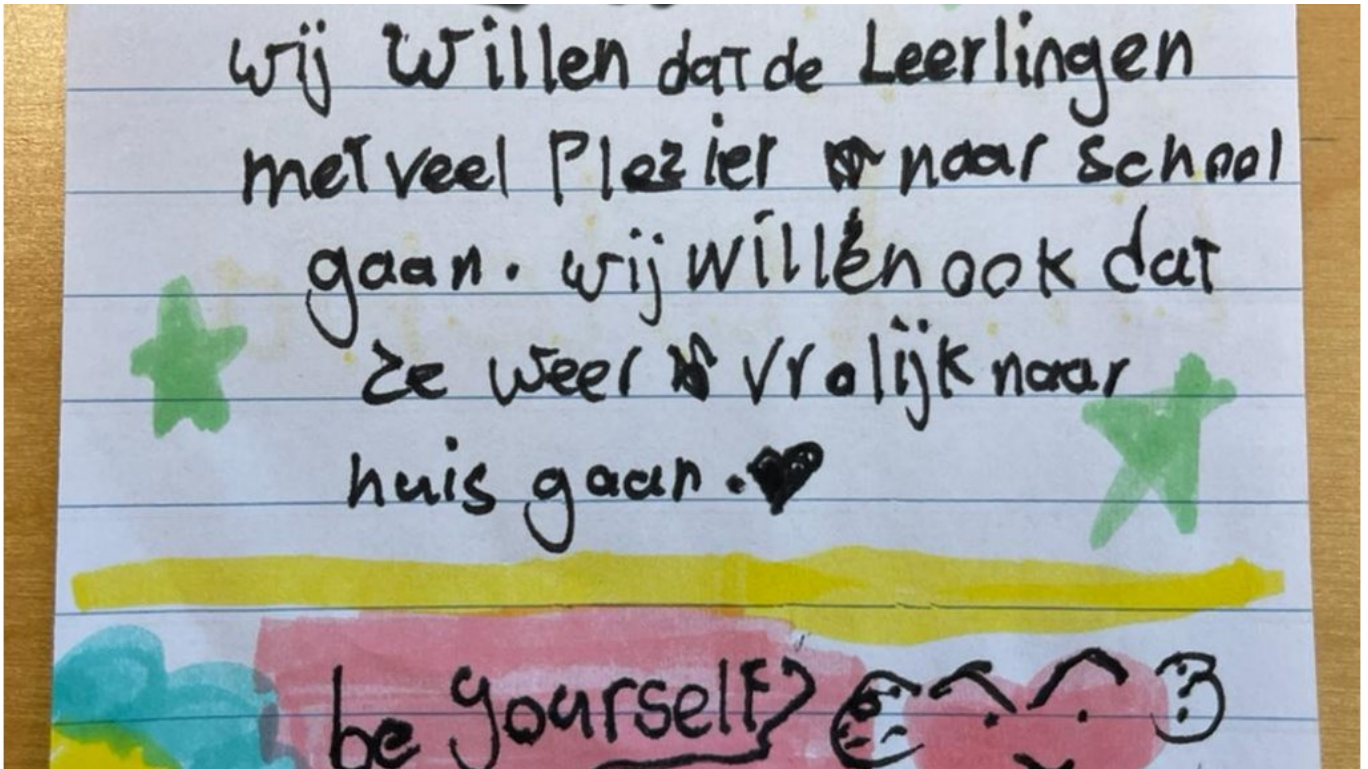 wij willen dat de Leerlingen
met veel Plezier naar school
gaan. wij willen ook dat
ze weer vrolijk naar
huis gaan.
be yourself